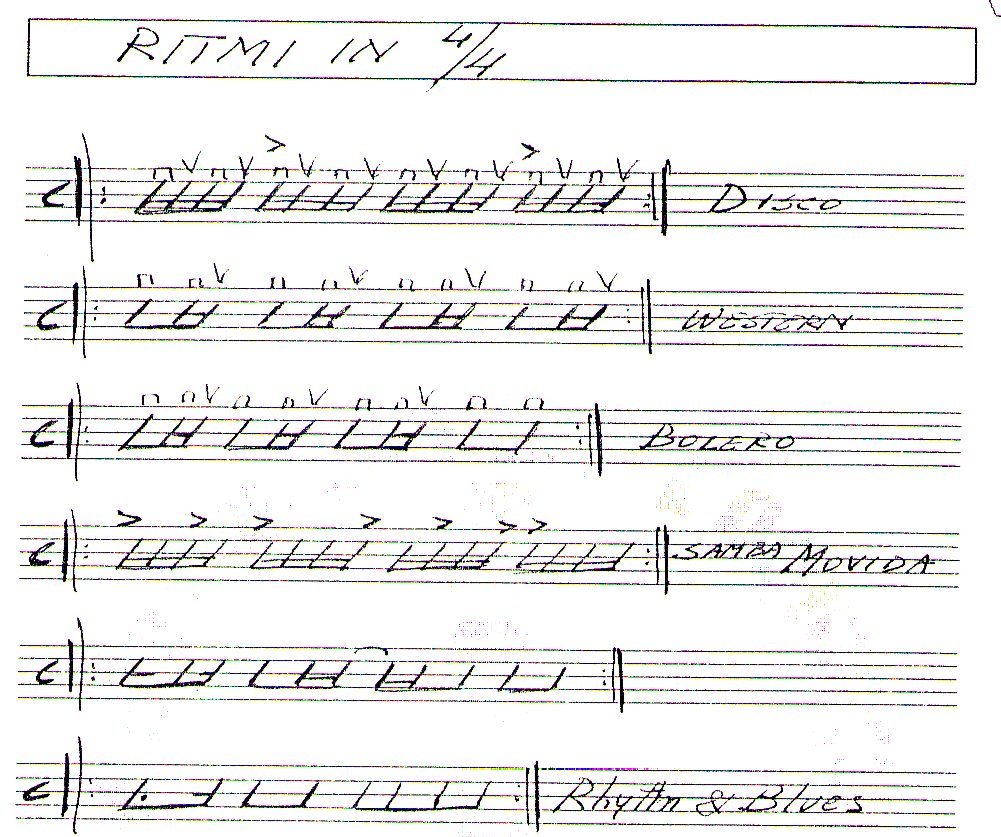 RITMI IN 4/4
C DISCO
C WESTERN
C BOLERO
C SAMBA MOVIDA
C
C Rhythm & Blues